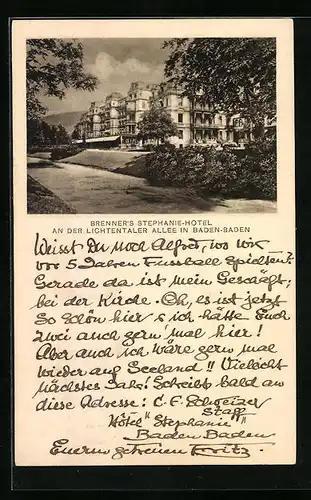 BRENNER'S STEPHANIE-HOTEL
AN DER LICHTENTALER ALLEE IN BADEN-BADEN
Weisst Du noch Alfred, wo wir
vor 5 Jahren Fussball spielten?
Gerade da ist mein Geschäft,
bei der Kirche. Oh, es ist jetzt
so schön hier & ich hätte Euch
zwei auch gern 'mal hier!
Aber auch ich wäre gern mal
wieder auf Seeland!! Vielleicht
nächstes Jahr! Schreibt bald an
diese Adresse: C. F. Schweizer
Staff
Hôtel "Stephanie"
Baden Baden
Euern getreuen Fritz.